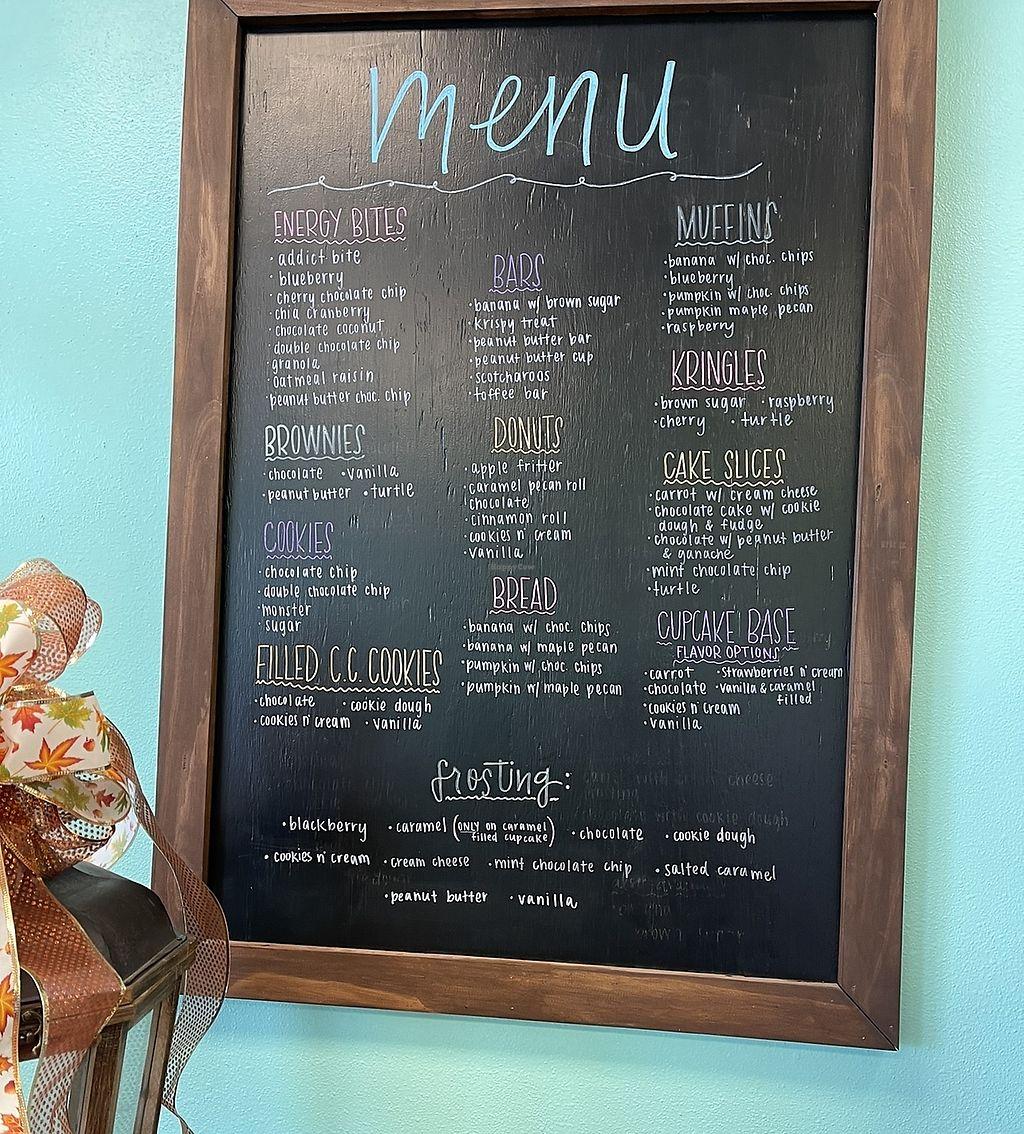 menu
ENERGY BITES
• addict bite
• blueberry
• cherry chocolate chip
• chia cranberry
• chocolate coconut
• double chocolate chip
• granola
• oatmeal raisin
• peanut butter choc. chip
BROWNIES
• chocolate • vanilla
• peanut butter • turtle
COOKIES
• chocolate chip
• double chocolate chip
• monster
• sugar
FILLED C.C. COOKIES
• chocolate • cookie dough
• cookies n' cream • vanilla
BARS
• banana w/ brown sugar
• krispy treat
• peanut butter bar
• peanut butter cup
• scotcharoos
• toffee bar
DONUTS
• apple fritter
• caramel pecan roll
chocolate
• cinnamon roll
• cookies n' cream
• vanilla
BREAD
• banana w/ choc. chips
• banana w/ maple pecan
• pumpkin w/ choc. chips
• pumpkin w/ maple pecan
MUFFINS
• banana w/ choc. chips
• blueberry
• pumpkin w/ choc. chips
• pumpkin maple pecan
• raspberry
KRINGLES
• brown sugar • raspberry
• cherry • turtle
CAKE SLICES
• carrot w/ cream cheese
• chocolate cake w/ cookie
dough & fudge
• chocolate w/ peanut butter
& ganache
• mint chocolate chip
• turtle
CUPCAKE BASE
FLAVOR OPTIONS
• carrot • strawberries n' cream
• chocolate • vanilla & caramel
filled
• cookies n' cream
• vanilla
frosting:
• blackberry • caramel (ONLY on caramel
filled cupcake) • chocolate • cookie dough
• cookies n' cream • cream cheese • mint chocolate chip • salted caramel
• peanut butter • vanilla
HappyCow